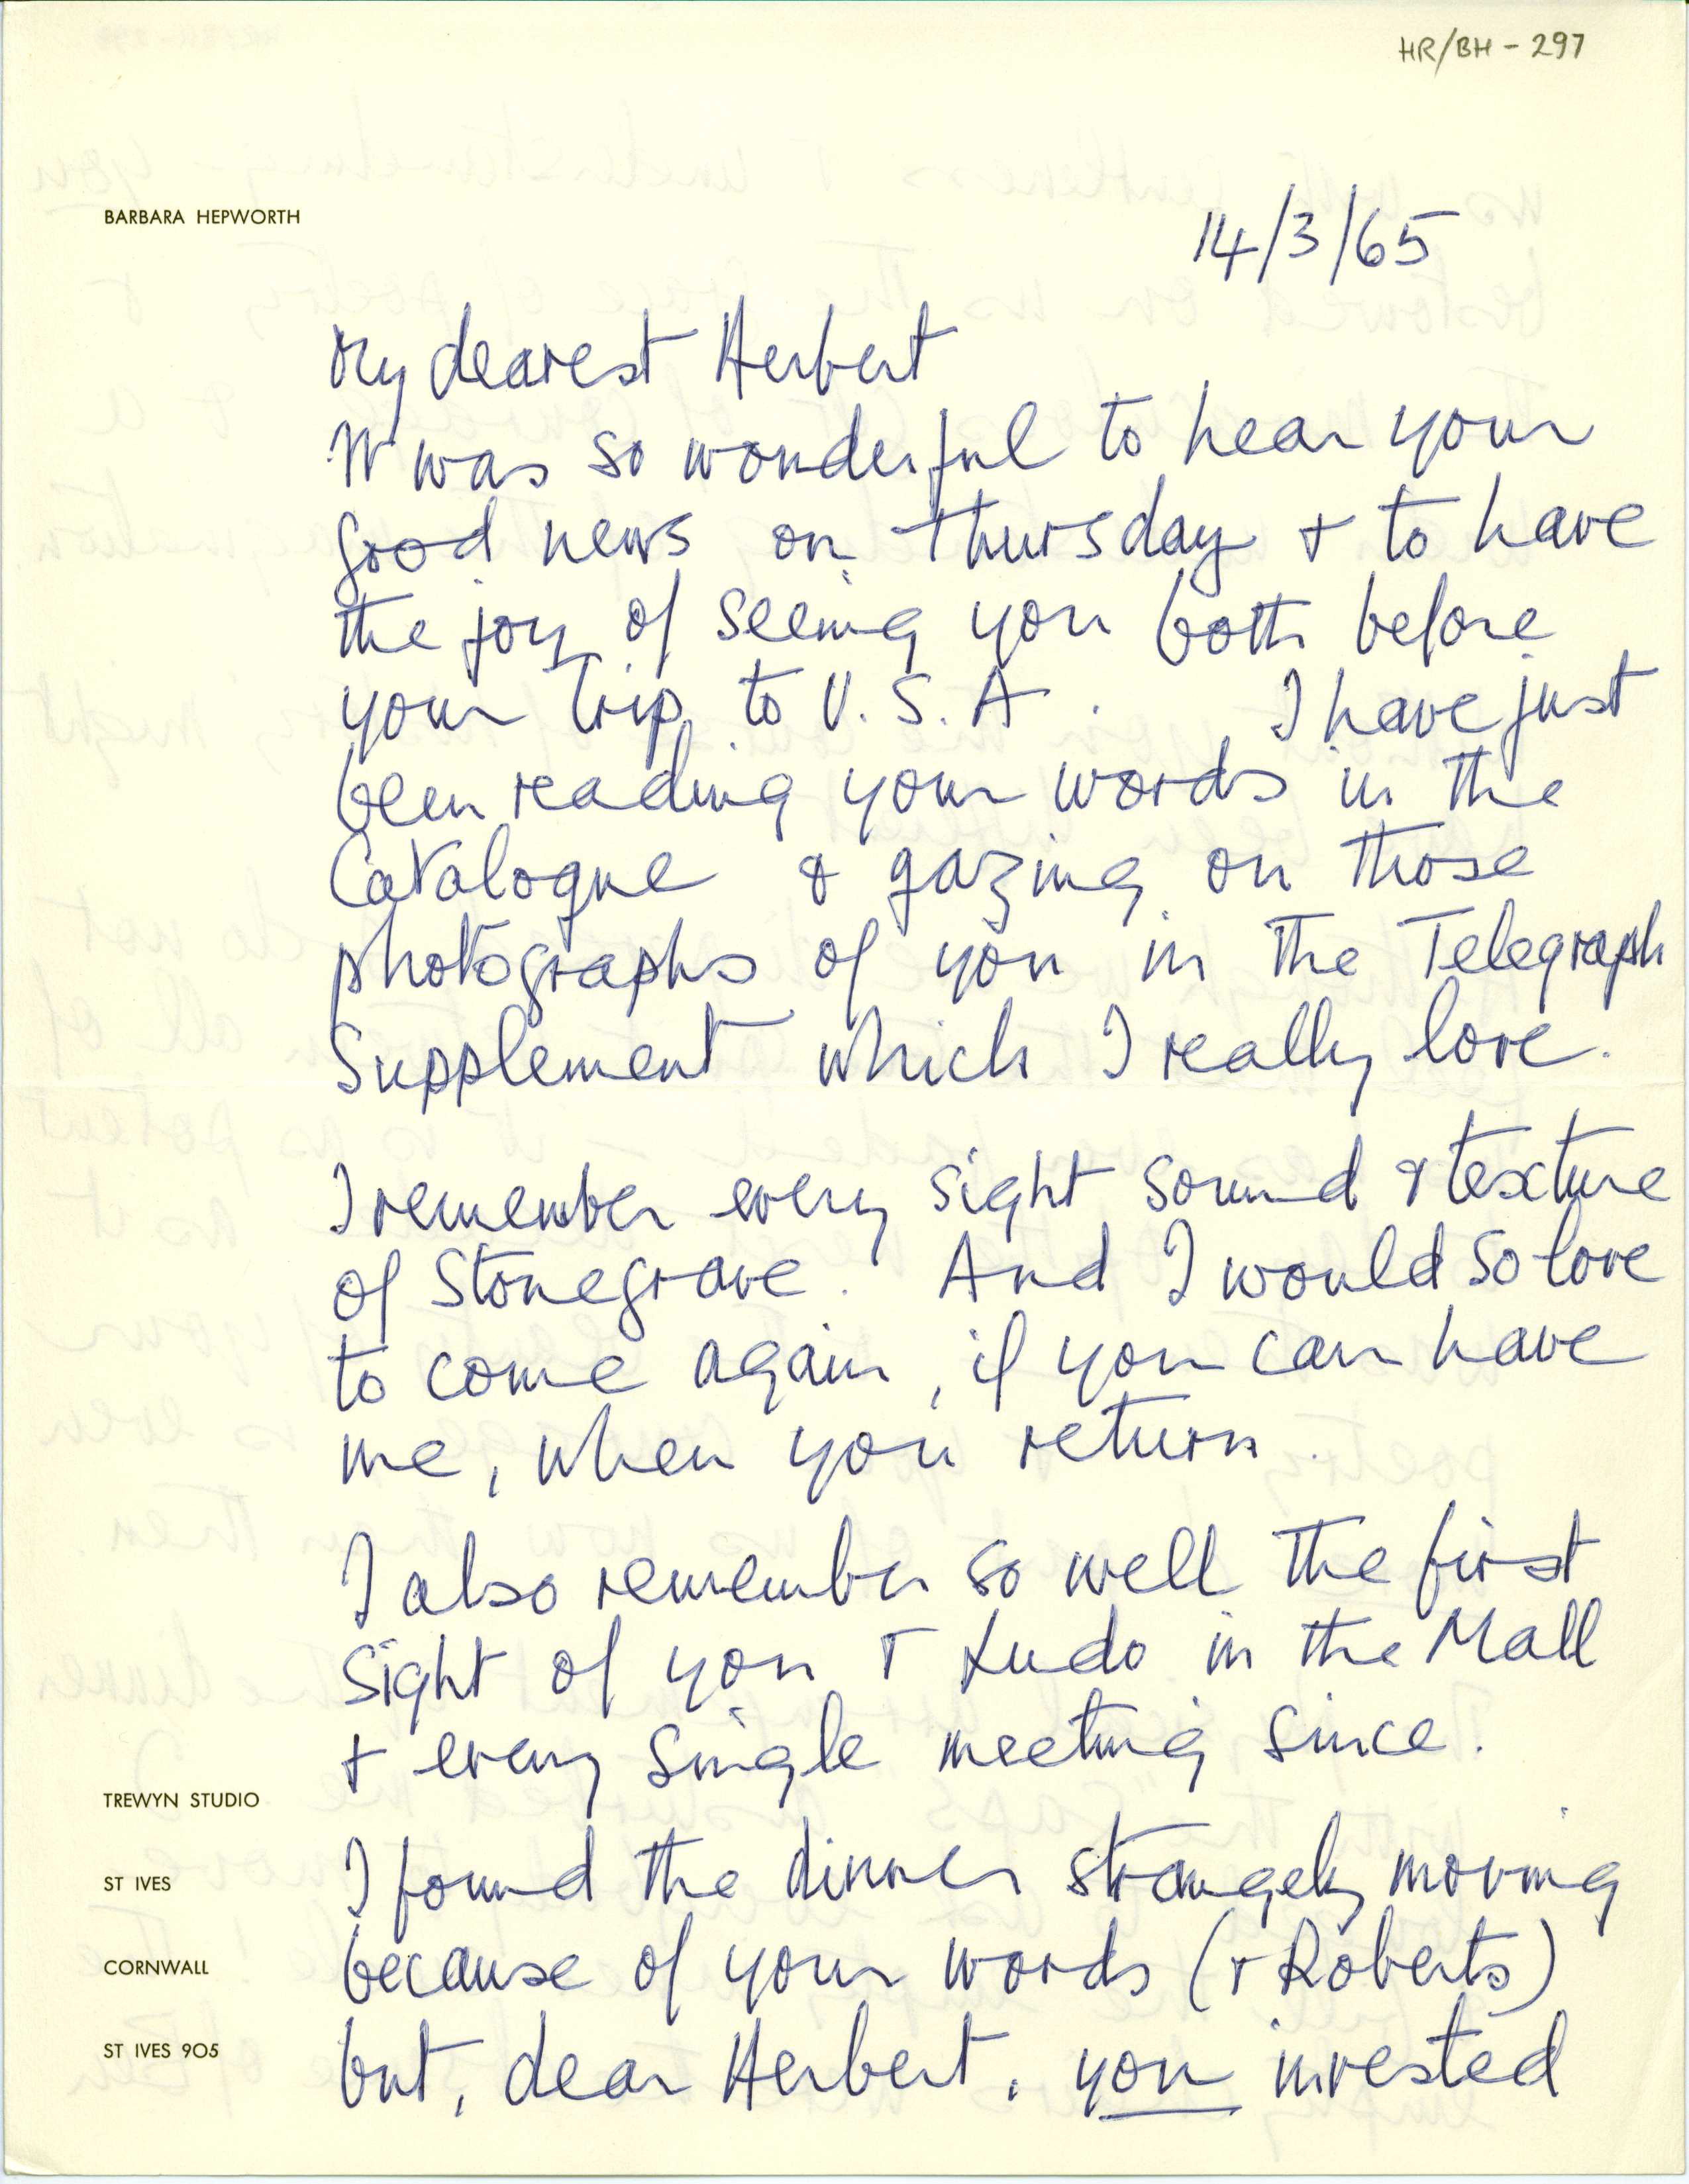 HR/BH - 297
BARBARA HEPWORTH
14/3/65
My dearest Herbert
It was so wonderful to hear your
good news on Thursday + to have
the joy of seeing you both before
your trip to U.S.A. I have just
been reading your words in the
Catalogue & gazing on those
photographs of you in the Telegraph
Supplement which I really love.
I remember every sight sound & texture
of Stonegrave. And I would so love
to come again, if you can have
me, when you return.
I also remember so well the first
sight of you + Ludo in the Mall
+ every single meeting since.
TREWYN STUDIO
I found the dinner strangely moving
ST IVES
because of your words (+ Roberts)
CORNWALL
but, dear Herbert, you invested
ST IVES 905